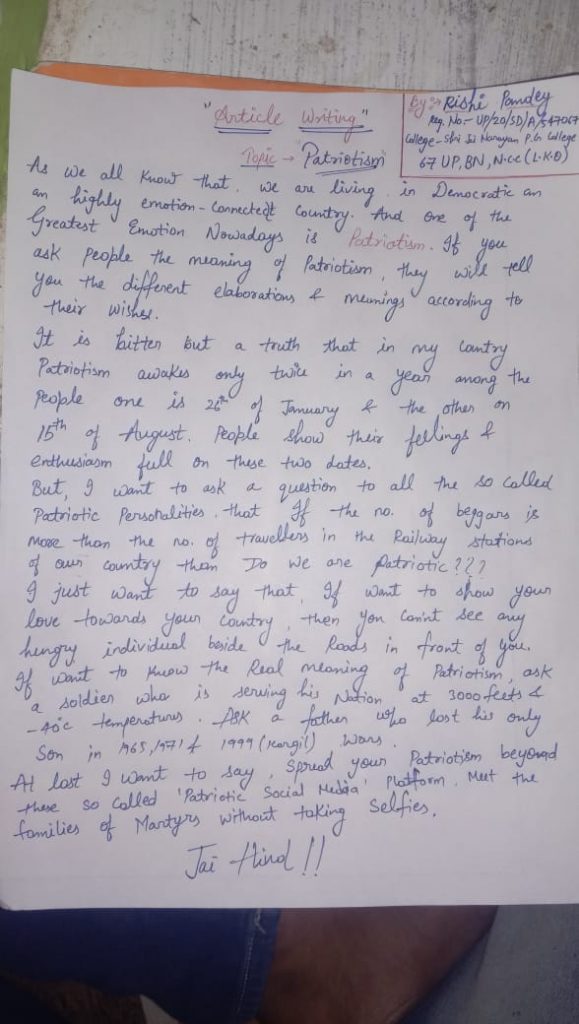 "Article Writing"
By:- Rishi Pandey
Reg. No:- UP/20/SD/A/547067
College - Shri Jai Narayan P.G College
67 UP, BN, N.C.C (L.K.O)
Topic → Patriotism
As we all know that, we are living in Democratic an
an highly emotion-connected country. And one of the
Greatest Emotion Nowadays is Patriotism. If you
ask people the meaning of Patriotism, they will tell
you the different elaborations & meanings according to
their wishes.
It is bitter but a truth that in my country
Patriotism awakes only twice in a year among the
People one is 26th of January & the other on
15th of August. People show their fellings &
enthusiasm full on these two dates.
But, I want to ask a question to all the so called
Patriotic Personalities, that If the no. of beggars is
more than the no. of travellers in the Railway stations
of our country than Do we are Patriotic???
I just want to say that, If want to show your
love towards your country, then you can't see any
hungry individual beside the Roads in front of you.
If want to know the Real meaning of Patriotism, ask
a soldier who is serving his Nation at 3000 feets &
-40°c temperatures. Ask a father who lost his only
Son in 1965, 1971 & 1999 (Kargil) wars.
At last I want to say, Spread your Patriotism beyond
these so called 'Patriotic Social Media' Platform. Meet the
families of Martyrs without taking Selfies.
Jai Hind!!